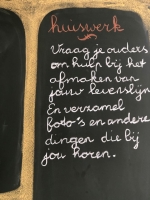 huiswerk
Vraag je ouders
om hulp bij het
afmaken van
jouw levenslijn
En verzamel
foto's en andere
dingen die bij
jou horen.